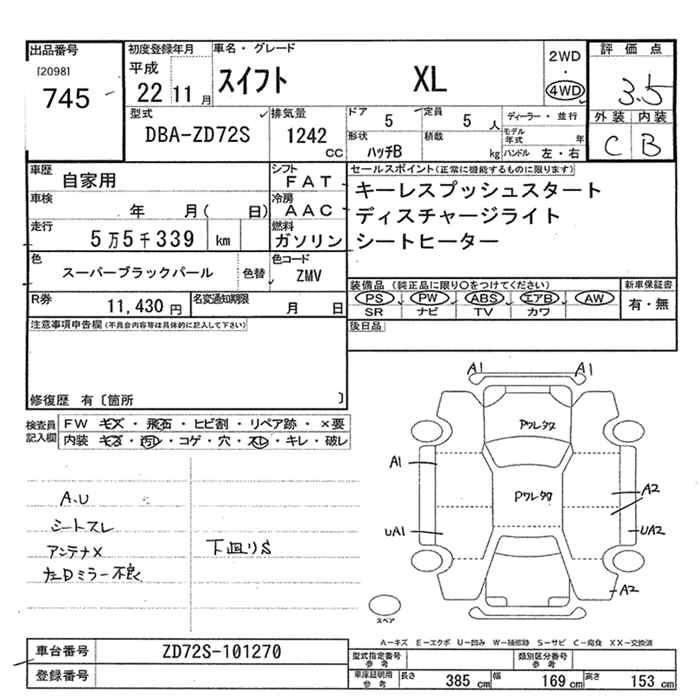 出品番号
[2098]
745
初度登録年月
平成
22 11 月
車名・グレード
スイフト XL
2WD
・
4WD
評価点
3.5
外装 内装
C B
型式
DBA-ZD72S
排気量
1242
CC
ドア
5
定員
5 人
形状
ハッチB
積載
kg
ディーラー・並行
モデル年式 年
ハンドル 左・右
車歴
自家用
シフト
FAT
車検
年 月( 日)
冷房
AAC
走行
5万5千339 km
燃料
ガソリン
色
スーパーブラックパール
色替
色コード
ZMV
R券
11,430 円
名変通知期限
月 日
セールスポイント(正常に機能するものに限ります)
キーレスプッシュスタート
ディスチャージライト
シートヒーター
装備品 (純正品に限り○をつけてください)
PS PW ABS エアB AW
SR ナビ TV カワ
新車保証書
有・無
後日品
注意事項申告欄(不具合内容等は具体的に記入して下さい)
修復歴 有〔箇所 〕
検査員記入欄
FW キズ・飛石・ヒビ割・リペア跡・×要
内装 キズ・汚レ・コゲ・穴・スレ・キレ・破レ
A.U
シートスレ
アンテナX
左Dミラー不良
下廻りS
A1 A1
PワレタX
A1
PワレタX
A2
UA1
UA2
A2
スペア
A-キズ E-エクボ U-凹み W-補修跡 S-サビ C-腐食 XX-交換済
車台番号
ZD72S-101270
登録番号
型式指定番号
参考
類別区分番号
参考
車庫証明用
参考
長さ 385 cm
幅 169 cm
高さ 153 cm